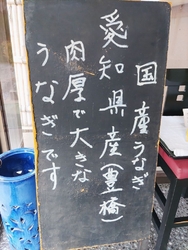 国産うなぎ
愛知県産(豊橋)
肉厚で大きな
うなぎです